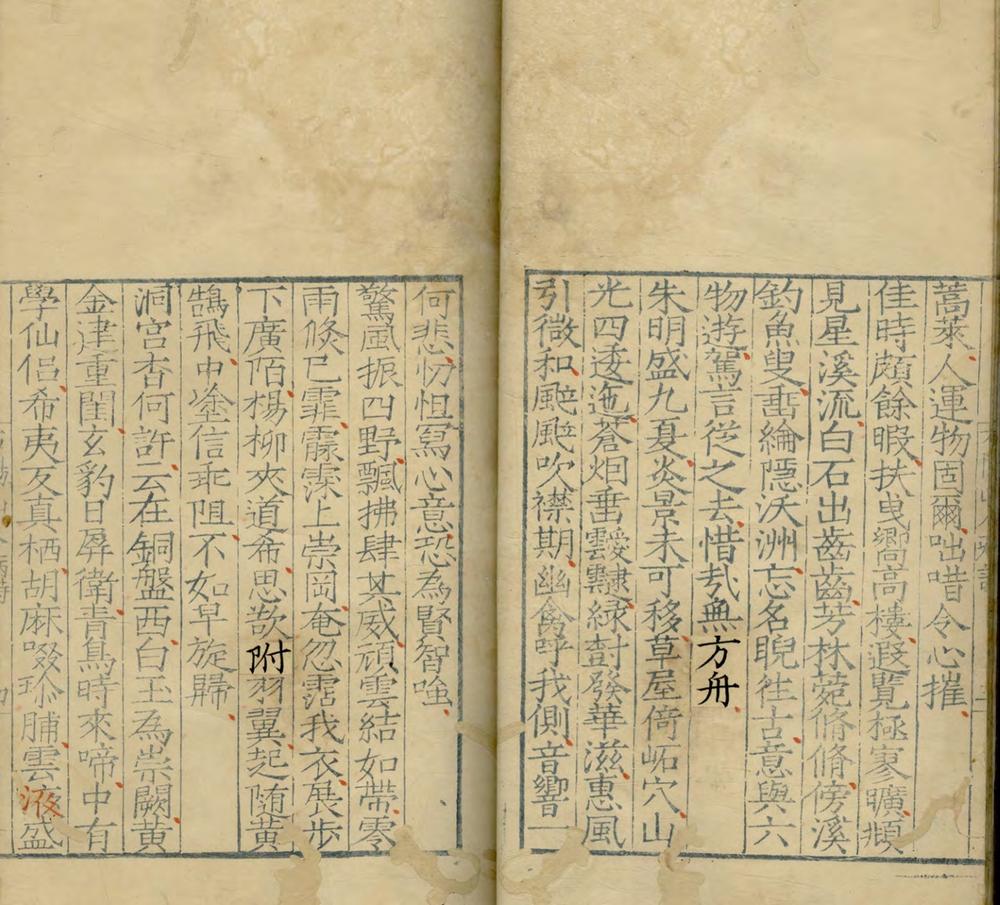 蒿萊人運物固爾咄唶令心摧
佳時頗餘暇扶曳嚮高樓遐覽極寥曠頫
見星溪流白石出齒齒芳林菀脩脩傍溪
釣魚叟垂綸隱沃洲忘名睨往古意與六
物遊駕言從之去惜哉無方舟
朱明盛九夏炎景未可移草屋倚岵穴山
光四逶迤蒼烟垂靉靆綠樹發華滋惠風
引微和颸颸吹襟期幽禽呼我側音響一
何悲忉怛寫心意恐為賢智嗤
驚風振四野飄拂肆其威頑雲結如帶零
雨倏已霏霢霂上崇岡奄忽霑我衣展步
下廣陌楊柳夾道希思欲附羽翼起隨黃
鵠飛中塗信乖阻不如早旋歸
洞宮杳何許云在銅盤西白玉為崇闕黃
金津重閨玄豹日屏衛青鳥時來啼中有
學仙侶希夷反真栖胡麻啜珍脯雲液盛